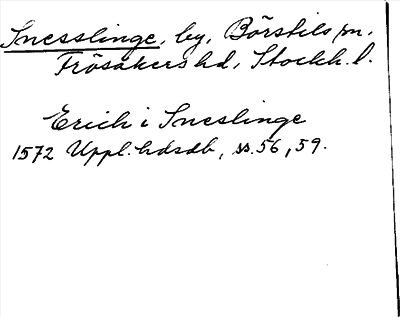 Snesslinge, by, Börstils sn,
Frösåkers hd, Stockh. l.
Erich i Sneslinge
1572 Uppl. hdsdb, ss. 56, 59.